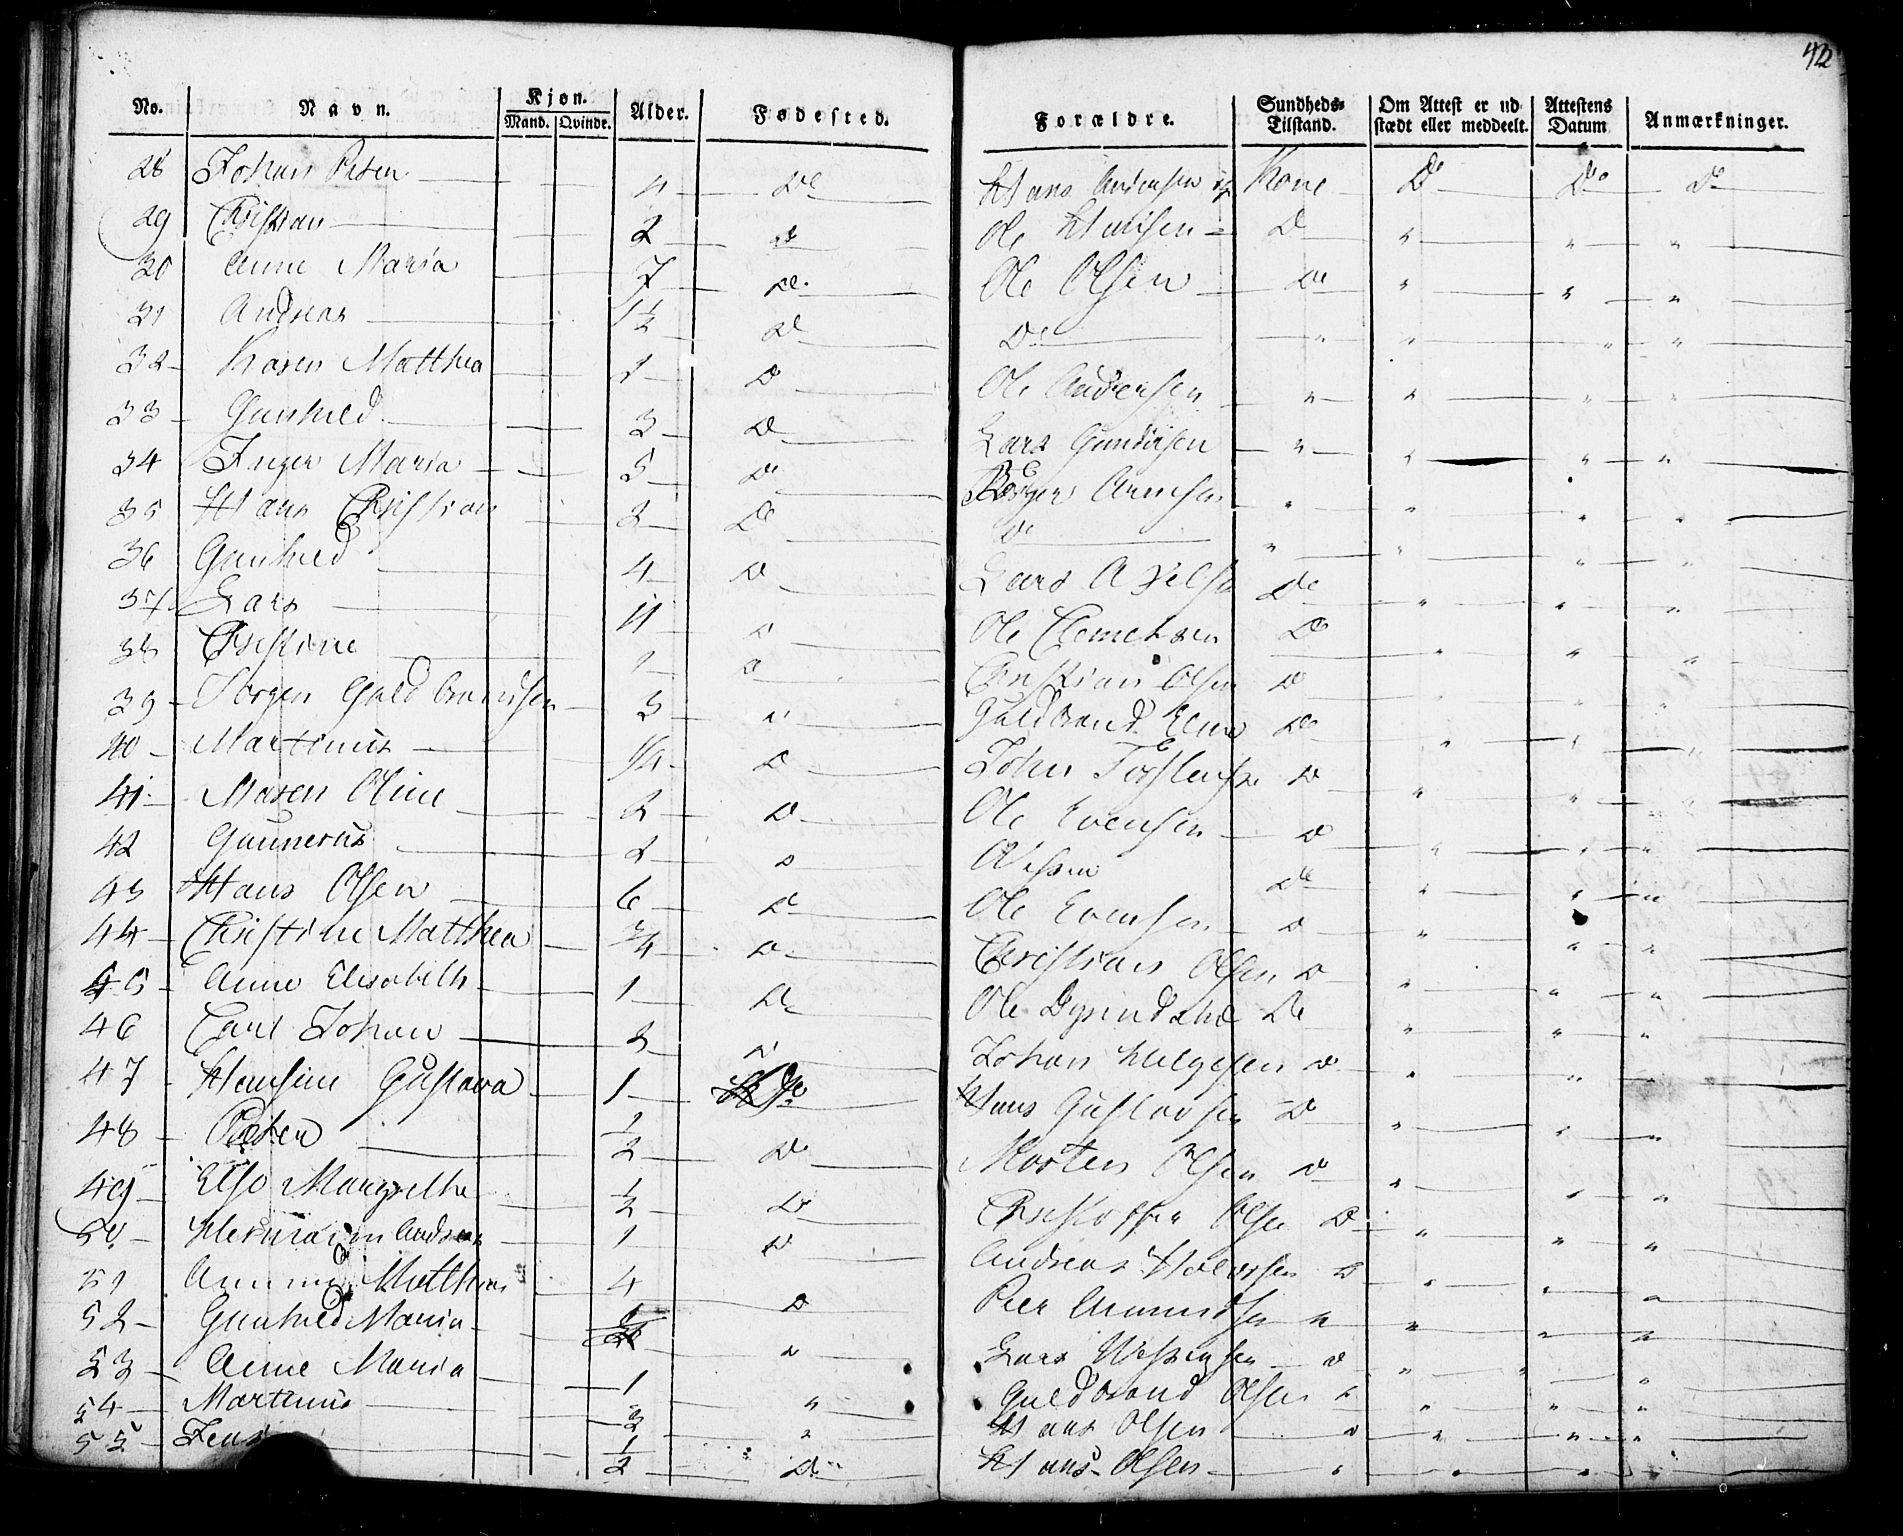 42
No. Navn. Kjøn. Mand. Qvinde. Alder. Fødested. Forældre. Sundheds-Tilstand. Om Attest er udstædt eller meddeelt. Attestens Datum Anmærkninger.
28 Johan Peter 4 De Hans Andersen og Kone De Do De
29 Christian 2 De Ole Hansen D " " "
30 Anne Maria 7 De. Ole Olsen De " " "
31 Andreas 1½ De De " " " "
32 Karen Matthea 1 D Ole Andersen " " " "
33 Gunhild 3 D Lars Gundersen " " " "
34 Inger Maria 5 D Børger Arnesen " " " "
35 Hans Christian 2 De De " " " "
36 Gunhild 4 D Lars De " " "
37 Lars 11 D Ole Clemetsen D " " "
38 Christine 1 D Christian Olsen D " " "
39 Jørgen Guldbrandsen 3 D Guldbrand De " " "
40 Martinus 1/4 D John Torstensen D " " "
41 Maren Oline 2 D Ole Evensen D " " "
42 Gunnerus 2 D De " " "
43 Hans Olsen 6 D Ole Evensen D " " "
44 Christine Matthea 3/4 D Christian Olsen D " " "
45 Anne Elisabeth 1 D Ole De " " "
46 Carl Johan 2 D Johan Helgesen D " " "
47 Hansine Gustava 1 Do Hans Gustavsen D " " "
48 Peter ½ D Morten Olsen D " " "
49 Else Margrethe ½ D Christopher Olsen D " " "
50 Andreas 1 D Andreas Halvorsen D " " "
51 Matthea 4 D Peer Amundsen " " " "
52 Gunhild Maria D Lars D " " "
53 Anne Maria 1 " Guldbrand Olsen " " " "
54 Martinus " Hans Olsen D " " "
55 Jens ½ D Hans Olsen " " "